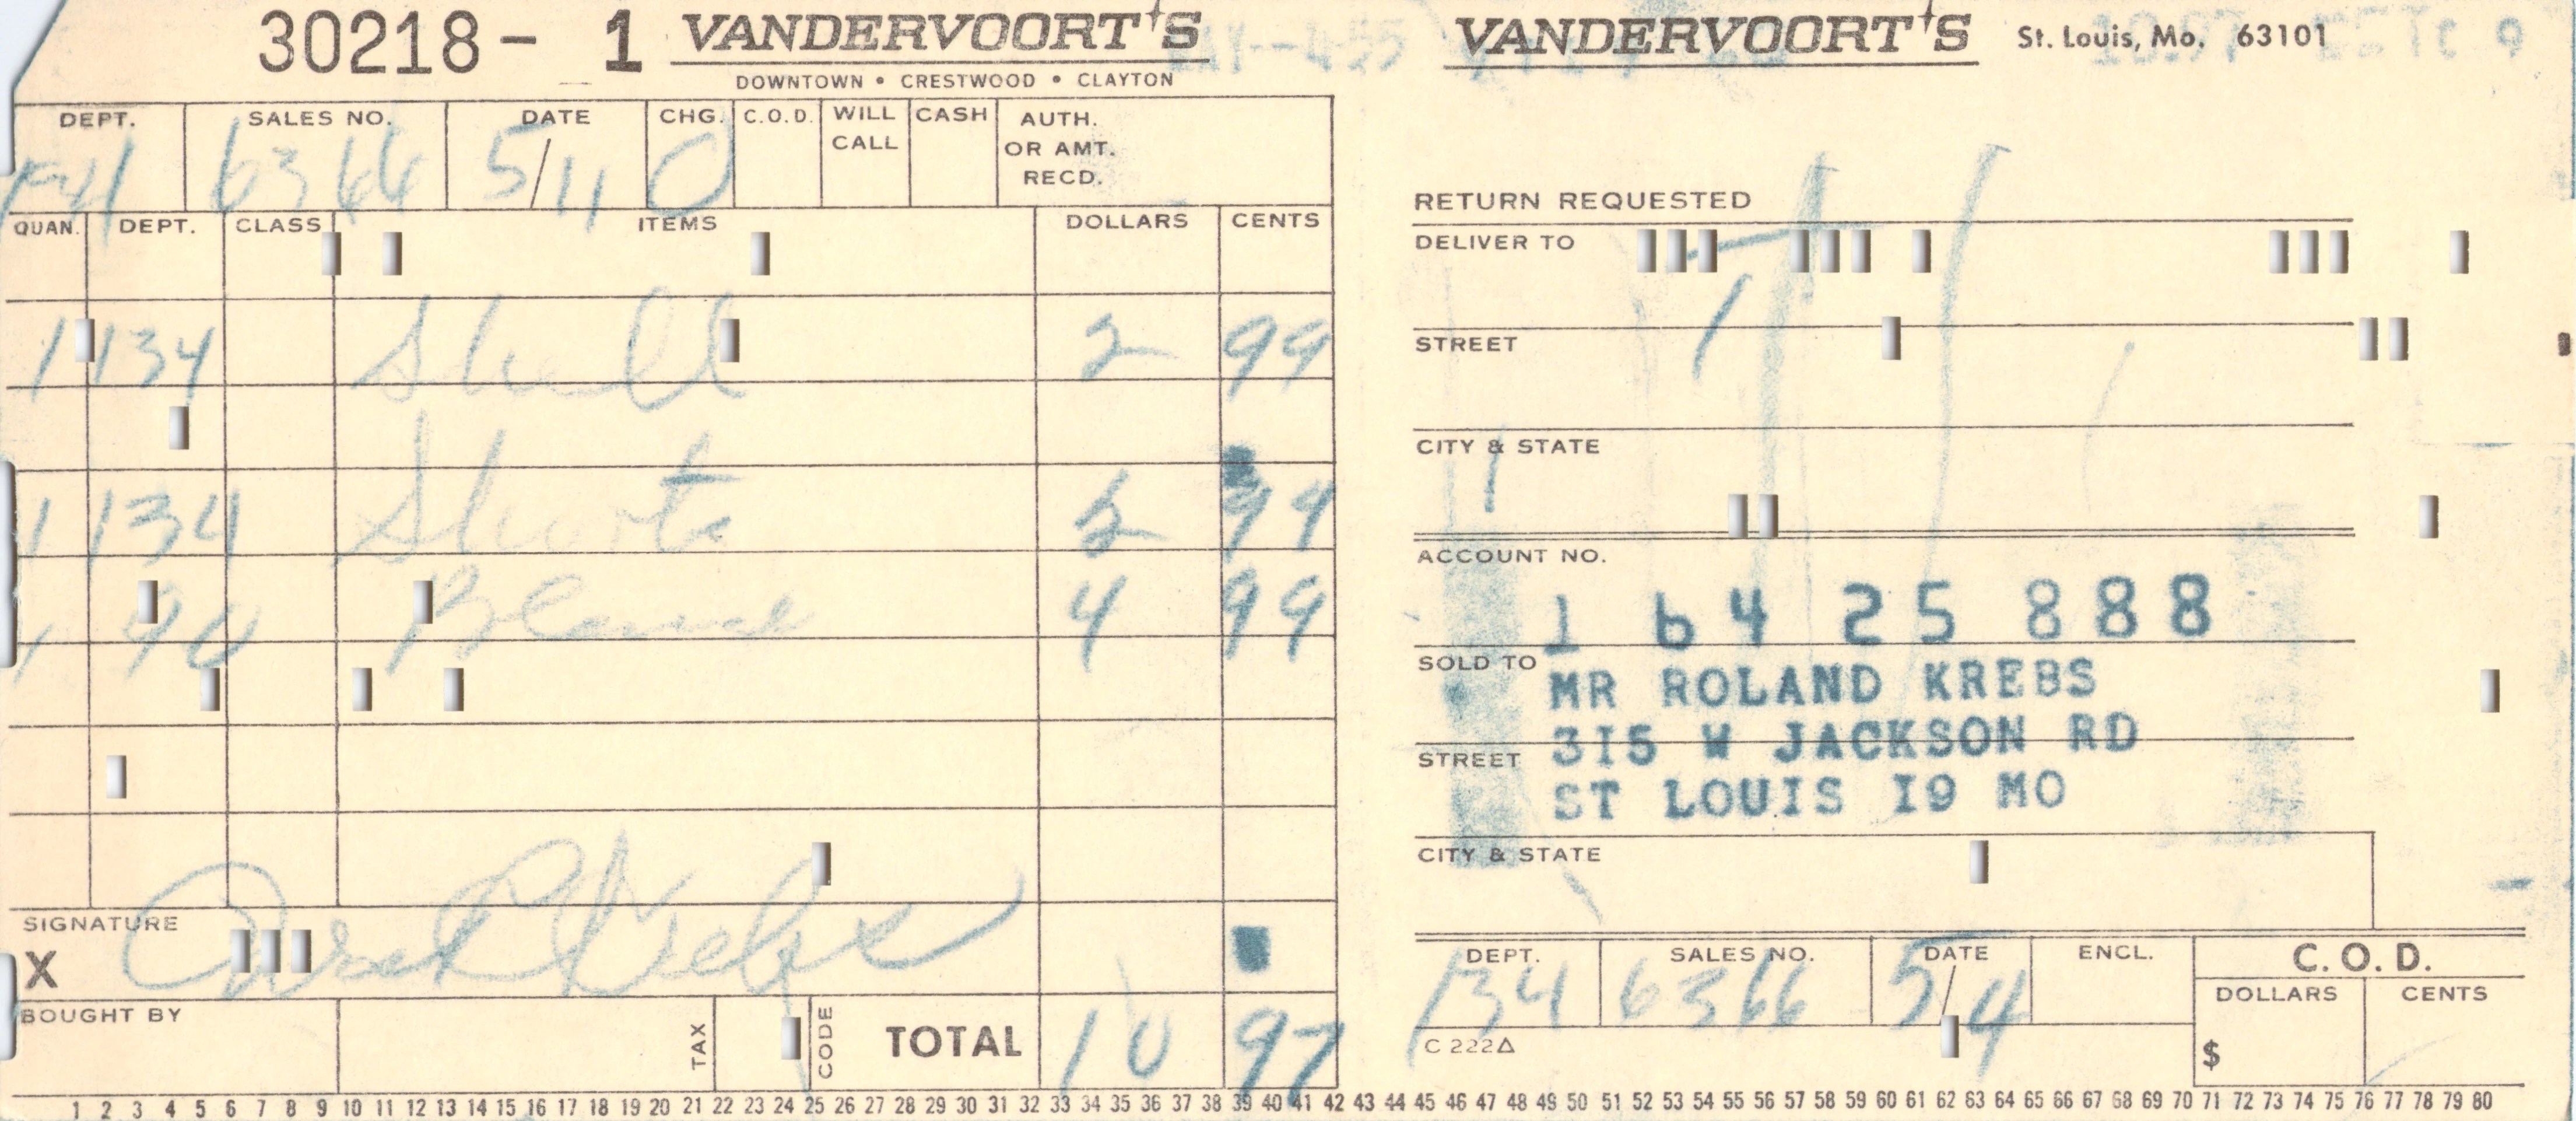 30218- 1 VANDERVOORT'S
DOWNTOWN • CRESTWOOD • CLAYTON
DEPT. SALES NO. DATE CHG. C.O.D. WILL CALL CASH AUTH. OR AMT. RECD.
6366 5/
QUAN. DEPT. CLASS ITEMS DOLLARS CENTS
1 134 Shell 2 99
1 134 Shorts 2 99
1 90 Blouse 4 99
SIGNATURE
X Krebs
BOUGHT BY TAX CODE TOTAL 10 97
VANDERVOORT'S St. Louis, Mo. 63101
RETURN REQUESTED
DELIVER TO
STREET
CITY & STATE
ACCOUNT NO.
1 64 25 888
SOLD TO MR ROLAND KREBS
STREET 315 W JACKSON RD
ST LOUIS 19 MO
CITY & STATE
DEPT. SALES NO. DATE ENCL. C.O.D.
134 6366 5/4 DOLLARS CENTS
C 222Δ $
1 2 3 4 5 6 7 8 9 10 11 12 13 14 15 16 17 18 19 20 21 22 23 24 25 26 27 28 29 30 31 32 33 34 35 36 37 38 39 40 41 42 43 44 45 46 47 48 49 50 51 52 53 54 55 56 57 58 59 60 61 62 63 64 65 66 67 68 69 70 71 72 73 74 75 76 77 78 79 80